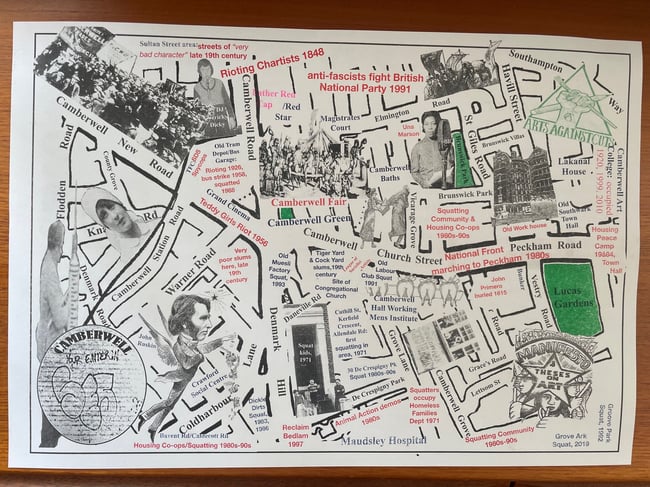 Sultan Street area: streets of "very
bad character" late 19th century
Rioting Chartists 1848
anti-fascists fight British
National Party 1991
Southampton
Way
Havill Street
ARTS AGAINST CUTS
Camberwell
New
Road
Camberwell Road
/Red
Star
Magistrates
Court
Elmington
Road
Una
Marson
St
Giles Road
Brunswick Park
Brunswick Villas
Lakanal
House
Camberwell Art
College: occupied
1920, 1999, 2010
Old Tram
Depot/Bus
Garage:
Rioting 1926,
bus strike 1958,
squatted
1968
Grand Cinema
Camberwell
Baths
Vicarage Grove
Brunswick
Park
Old Work house
Old
Southwark
Town
Hall
County Grove
Flodden
Road
Rd
Teddy Girls Riot 1956
Camberwell Fair
Camberwell Green
Squatting
Community &
Housing Co-ops
1960s-90s
Housing
Peace
Camp
Town
Hall
Camberwell
Church
Street
National Front
marching to Peckham 1980s
Peckham Road
Denmark
Road
Camberwell
Station
Road
Warner Road
Very
poor slums
here, late
19th
century
Old
Muesli
Factory
Squat,
1993
Tiger Yard
& Cock Yard
slums,19th
century
Site of
Congregational
Church
Old
Labour
Club Squat
1991
John
Primero
buried 1615
Bunker
Vestry
Road
Lucas
Gardens
Camberwell
Hall Working
Mens Institute
Daneville Rd
CAMBERWELL
John
Ruskin
Crawford
Social Centre
Lane
Denmark
Hill
Squat
kids,
1971
Cuthill St,
Kerfield
Crescent,
Allendale Rd:
first
squatting in
area, 1971
Grove Lane
Grace's Road
Lettsom St
MANIFESTO
THESES
ON
ART
Groove Park
Squat, 1992
Coldharbour
Pickle
Dirts
Squat,
1983,
1996
De Crespigny Pk
Squat 1980s-90s
De Crespigny Park
Animal Action demos
1980s
Squatters
occupy
Homeless
Families
Dept 1971
Camberwell
Grove
Housing Co-ops/Squatting 1980s-90s
Reclaim
Bedlam
1997
Maudsley Hospital
Squatting Community
1980s-90s
Grove Ark
Squat, 2019